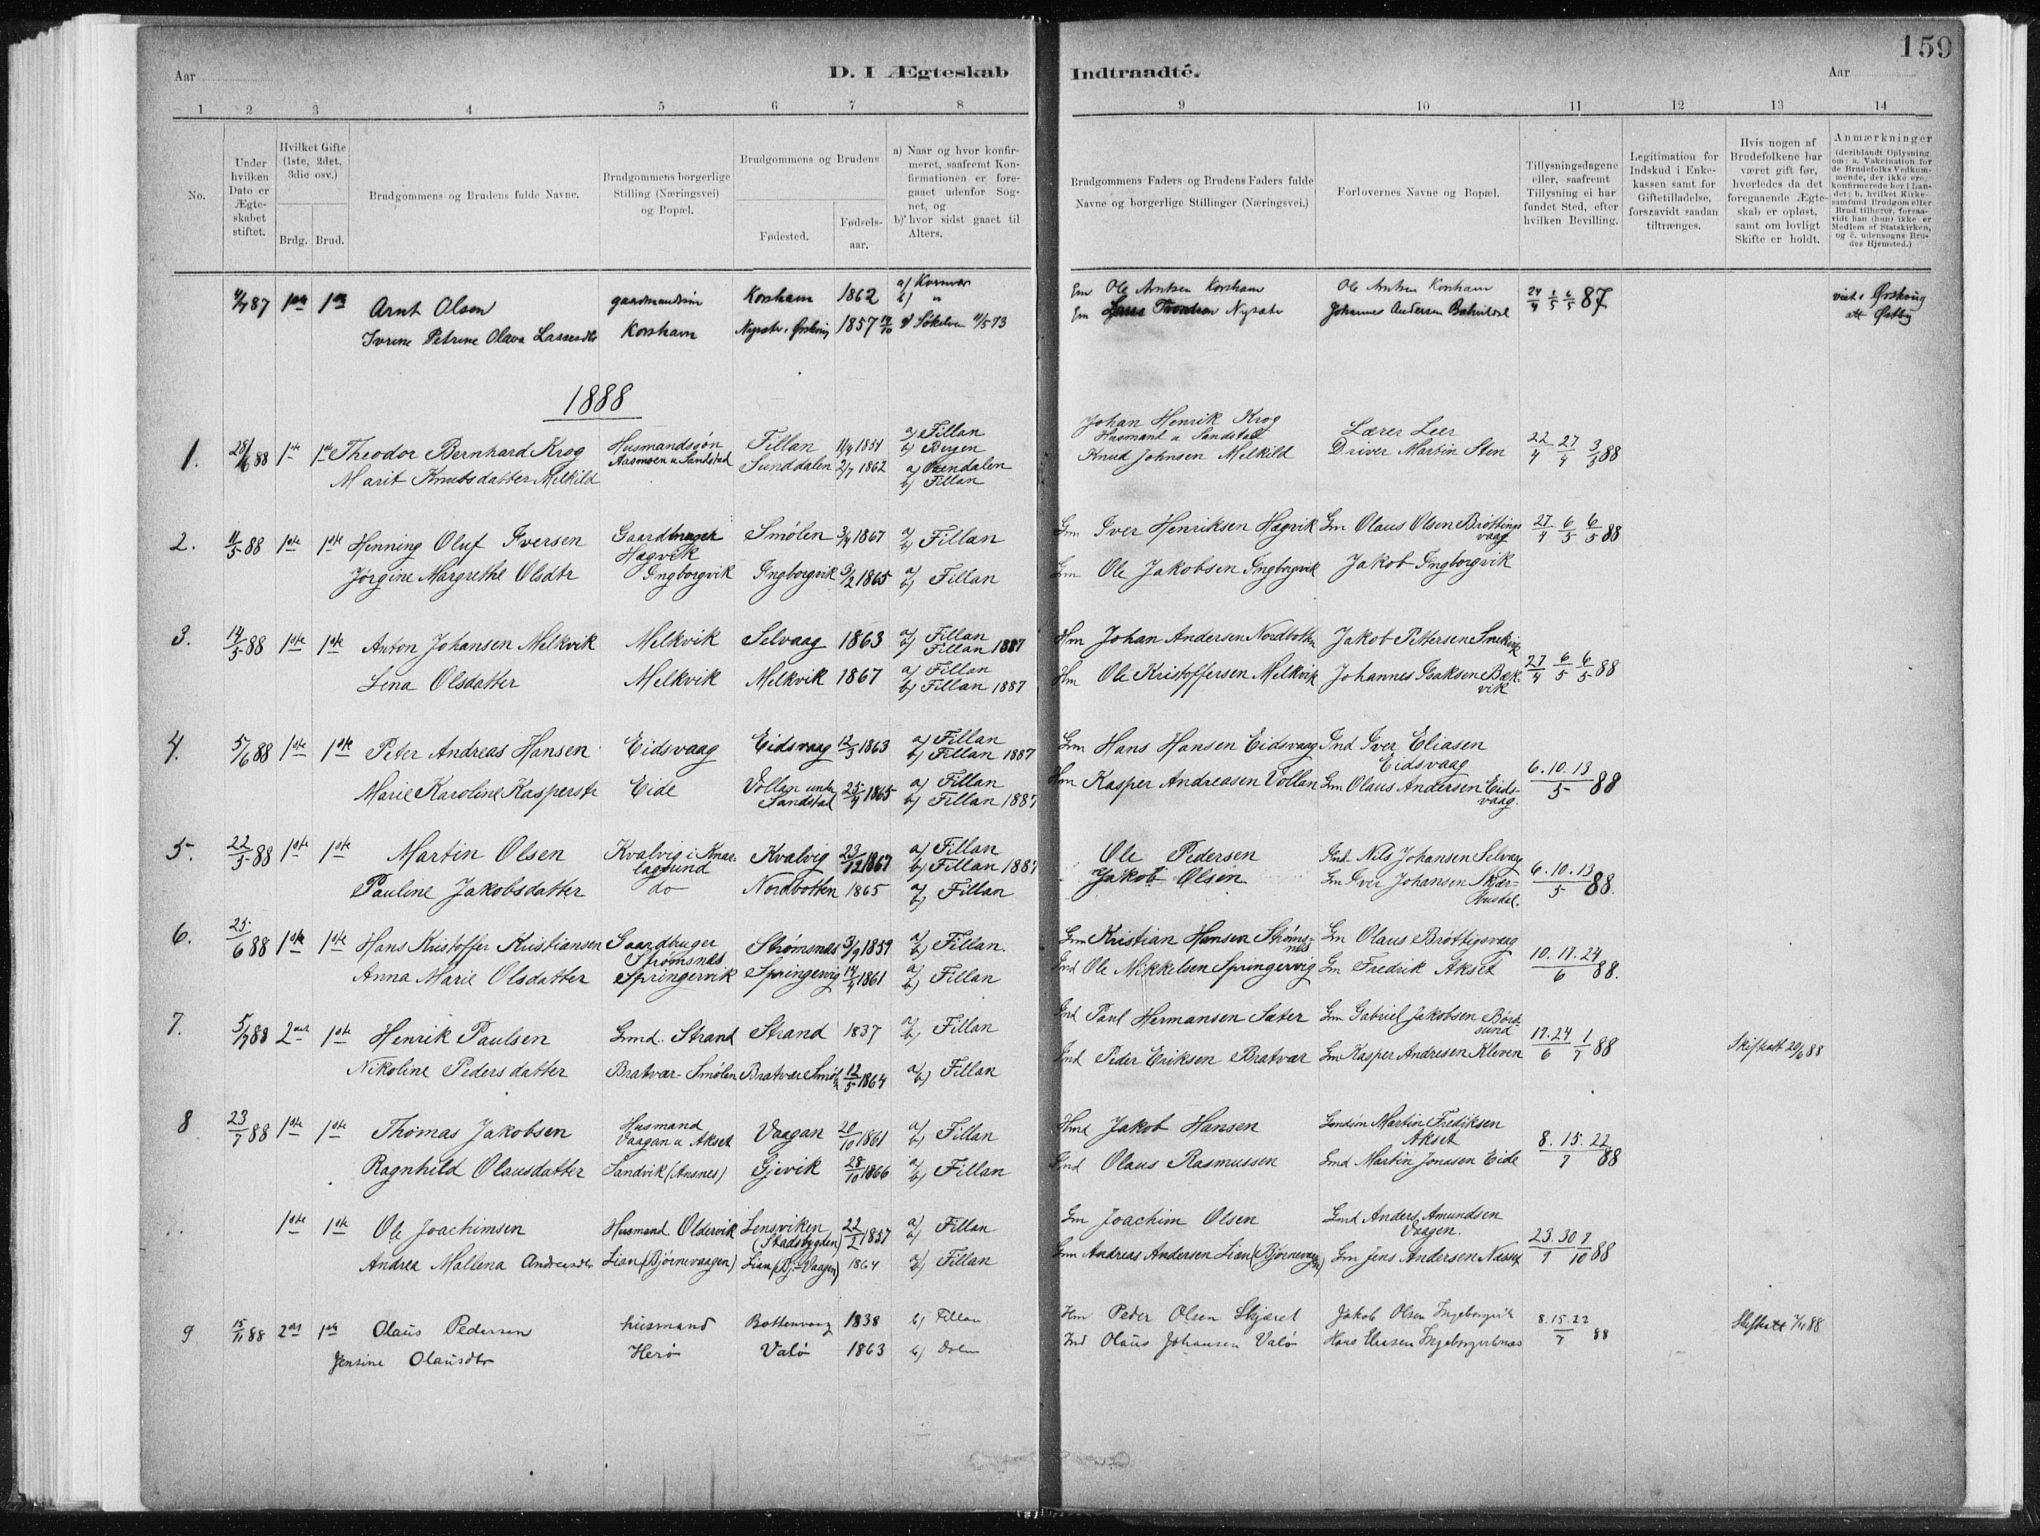 159
Aar
D. I Ægteskab
Indtraadté.
Aar
1 2 3 4 5 6 7 8 9 10 11 12 13 14
No.
Under hvilken Dato er Ægte-skabet stiftet.
Hvilket Gifte (1ste, 2det, 3die osv.)
Brdg. Brud.
Brudgommens og Brudens fulde Navne.
Brudgommens borgerlige Stilling (Næringsvei) og Bopæl.
Brudgommens og Brudens
Fødested. Fødsels-aar.
a) Naar og hvor konfir-meret, saafremt Kon-firmationen er fore-gaaet udenfor Sog-net, og
b) hvor sidst gaaet til Alters.
Brudgommens Faders og Brudens Faders fulde Navne og borgerlige Stillinger (Næringsvei.)
Forlovernes Navne og Bopæl.
Tillysningsdagene eller, saafremt Tillysning ei har fundet Sted, efter hvilken Bevilling.
Legitimation for Indskud i Enke-kassen samt for Giftetilladelse, forsaavidt saadan tiltrænges.
Hvis nogen af Brudefolkene har været gift før, hvorledes da det foregaaende Ægte-skab er opløst, samt om lovligt Skifte er holdt.
Anmærkninger (deriblandt Oplysning om: a. Vakcination for de Brudefolks Vedkom-mende, der ikke ere konfirmerede her i Lan-det; b. hvilket Kirke-samfund Brudgom eller Brud tilhører, forsaa-vidt han (hun) ikke er Medlem af Statskirken, og c. udensogns Bru-des Hjemsted.)
87 1ste 1ste Arnt Olsen Korsham 1862 b) " Ole Arntsen Korsham Ole Arntsen Korsham 24/4 1/5 6/5 87
Petrine Olava Lassesdtr Korsham 1857 Søkelven 11/5 73 Nysæter Johannes Andersen
1888
1. 88 1ste 1ste Theodor Bernhard Krog Husmandssøn Fillan a) Fillan b) Bergen Johan Henrik Krog Husmand u Sandstad Lærer Leer 22/4 27/4 3/5 88
Marit Knutsdatter Melkild Sunddalen 2/7 1862 b) Fillan Knud Johnsen Melkild Driver Martin Sten
2. 11/5 88 1ste 1ste Henning Oluf Iversen Gaardbruger Hagvik Smølen 3/4 1867 a) b) Fillan Gm Iver Henriksen Hagvik Gm Olaus Olsen Brøttingsvaag 27/4 6/5 6/5 88
Jørgine Margrethe Olsdtr Ingborgvik Ingborgvik 3/2 1865 a) b) Fillan Gm Ole Jakobsen Ingborgvik Jakob Ingborgvik
3. 14/5 88 1ste 1ste Anton Johansen Melkvik Melkvik Selvaag 1863 a) Fillan b) Fillan 1887 Hm Johan Andersen Nordbotten Jakob Pettersen 27/4 6/5 6/5 88
Lina Olsdatter Melkvik Melkvik 1867 a) Fillan b) Fillan 1887 Hm Ole Kristoffersen Melkvik Johannes Isaksen Bækvik
4. 5/6 88 1ste 1ste Peter Andreas Hansen Eidsvaag Eidsvaag 12/3 1863 a) Fillan b) Fillan 1887 Gm Hans Hansen Eidsvaag Ind Iver Eliasen Eidsvaag 6.10.13/5 88
Marie Karoline Kasperstr Eide Vollan unt Sandstad 25/4 1865 a) Fillan b) Fillan 1887 Hm Kasper Andreasen Vollan Gm Olaus Andersen Eidsvaag.
5. 22/5 88 1ste 1ste Martin Olsen Kvalvig i Knarlagsund Kvalvig 23/12 1867 a) Fillan b) Fillan 1887 Ole Pedersen Ind Nils Johansen Selvaag 6.10.13/5 88.
Pauline Jakobsdatter do Nordbotten 1865 a) b) Fillan Jakob Olsen Gm Iver Johansen
6. 25/6 88 1ste 1ste Hans Kristoffer Kristiansen Gaardbruger Strømsnes Strømsnes 3/9 1859 a) b) Fillan. Gm Kristian Hansen Strømsnes Gm Olaus Brøttigsvaag 10.17.24/6 88.
Anna Marie Olsdatter Springervik Springervig 14/4 1861 a) b) Fillan Ind Ole Mikkelsen Springervig Gm Fredrik Akset
7. 5/7 88 2det 1ste Henrik Paulsen Gmd. Strand Strand 1837 a) b) Fillan Ind Paul Hermansen Sæter Gm Gabriel Jakobsen 17.24/6 1/7 88 Skifteatt 20/6 88
Nikoline Pedersdatter Bratvær-Smølen Bratvær Smøl 12/5 1864 a) b) Fillan Ind Peder Eriksen Bratvær Gm Kasper Andresen Kleven
8 23/7 88 1ste 1ste Thomas Jakobsen Husmand Vaagan u Akset Vaagan 20/10 1861 a) b) Fillan Hmd Jakob Hansen Martin Fredriksen Akset 8.15.22/7 88
Ragnhild Olausdatter Sandvik (Ansnes) Gjevik 28/10 1866 a) b) Fillan Ind Olaus Rasmussen Gmd Martin Jonasen Eide
1ste 1ste Ole Joachimsen Husmand Oldervik Lensviken (Stadsbygden) 22/2 1857 a) b) Fillan Gm Joachim Olsen Gmd Anders Amundsen Vaagen. 23.30/9 7/10 88
Andrea Mallena Andreasdtr Lian (Bjørnevaagen) Lian (Bj-Vaagen) 1864 a) b) Fillan Gm Andreas Andersen Lian (Bjørnevaagen) Gm Jens Andersen
9 15/11 88 2det 1ste Olaus Pedersen husmand Bottenvaag 1838 b) Fillan Hm Peder Olsen Skjæret Jakob Olsen Ingeborgvik 8.15.22/7 88 Skifteatt 88
Jensine Olausdtr Herø Valø 1863 b) Dolm Ind Olaus Johansen Valø Hans Eliasen